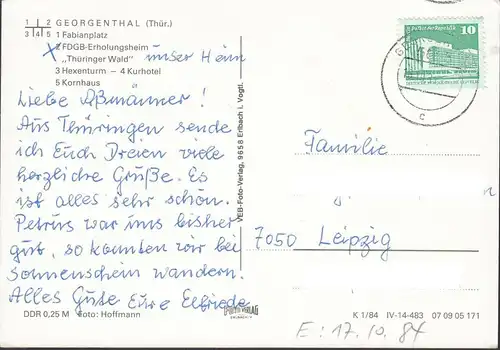 1 | 2 GEORGENTHAL (Thür.)
3 4 5 1 Fabianplatz
x 2 FDGB-Erholungsheim unser Heim
„Thüringer Wald"
3 Hexenturm – 4 Kurhotel
5 Kornhaus
Liebe Aßmänner!
Aus Thüringen sende
ich Euch Dreien viele
herzliche Grüße. Es
ist alles sehr schön.
Petrus war uns bisher
gut, so konnten wir bei
Sonnenschein wandern.
Alles Gute Eure Elfriede
DDR 0,25 M Foto: Hoffmann
VEB-Foto-Verlag, 9658 Erlbach i. Vogtl.
FOTO VERLAG
ERLBACH
10
Palast der Republik
DDR
c
Familie
7050 Leipzig
K 1/84 IV-14-483 07 09 05 171
E: 17.10.84